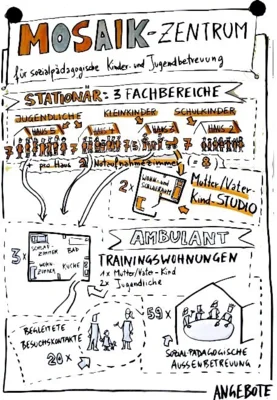 MOSAIK-ZENTRUM
für sozialpädagogische Kinder- und Jugendbetreuung
STATIONÄR: 3 FACHBEREICHE
JUGENDLICHE KLEINKINDER SCHULKINDER
HAUS HAUS HAUS HAUS
7 7 7
+ pro Haus 2 Notaufnahmezimmer 8
2x WOHN- UND SCHLAFRAUM
Mutter/Vater-
Kind-STUDIO
AMBULANT
3x
SCHLAF-
ZIMMER BAD
WOHN-
ZIMMER KÜCHE
TRAININGSWOHNUNGEN
1x Mutter/Vater-Kind
2x Jugendliche
BEGLEITETE
BESUCHSKONTAKTE
20x
59x
SOZIALPÄDAGOGISCHE
AUSSENBETREUUNG
ANGEBOTE